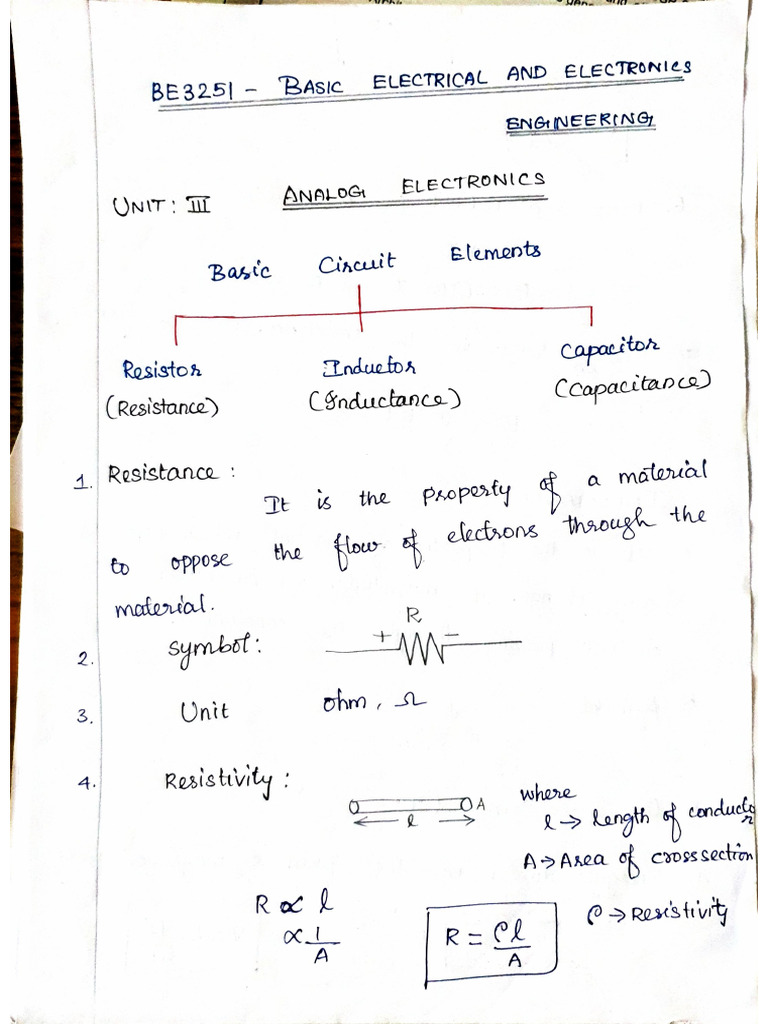 BE3251 - BASIC ELECTRICAL AND ELECTRONICS
ENGINEERING
UNIT: III ANALOG ELECTRONICS
Basic Circuit Elements
Resistor Inductor Capacitor
(Resistance) (Inductance) (Capacitance)
1. Resistance:
It is the property of a material
to oppose the flow of electrons through the
material.
R
2. Symbol: + -
3. Unit ohm, Ω
4. Resistivity:
A
l
where
l → length of conductor
A → Area of crosssection
ρ → Resistivity
R ∝ l
∝ 1/A
R = ρl/A